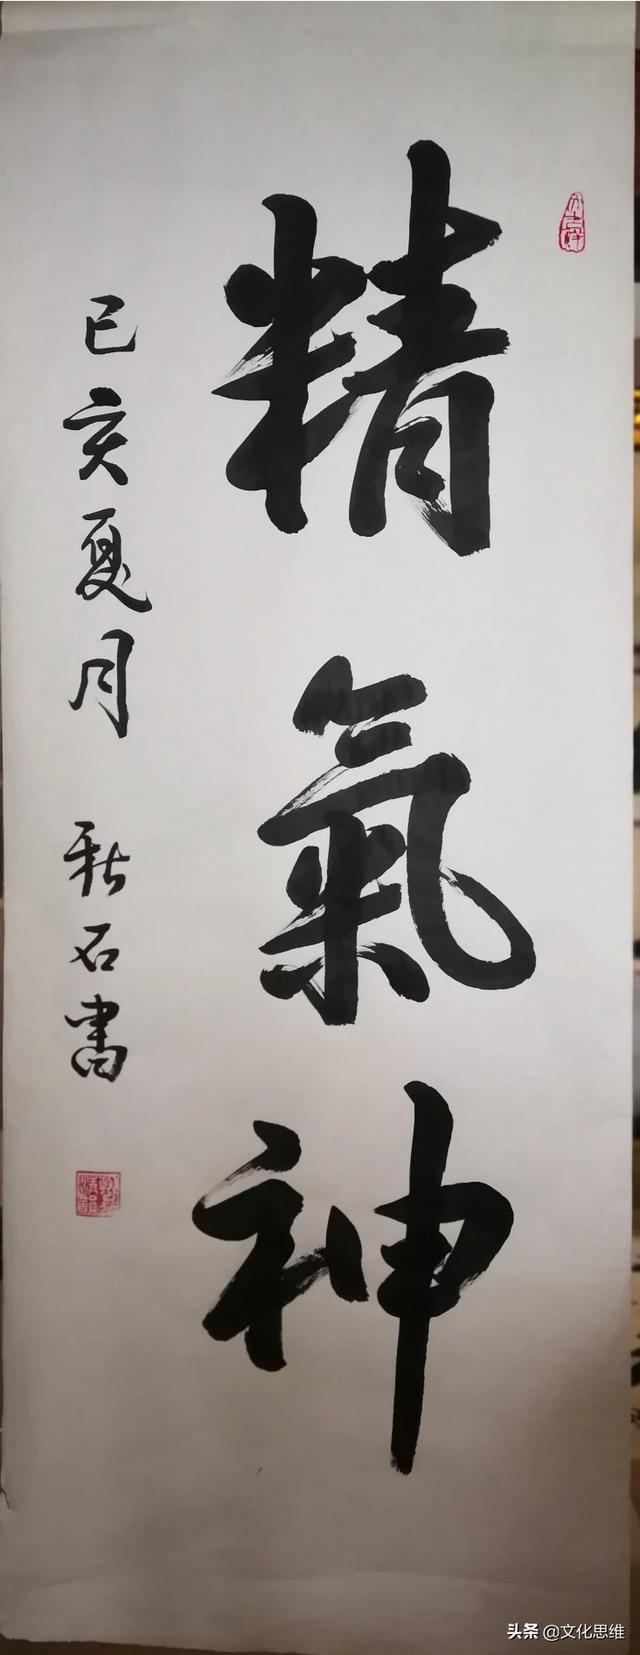 精氣神
己亥夏月 秋石書
头条 @文化思维